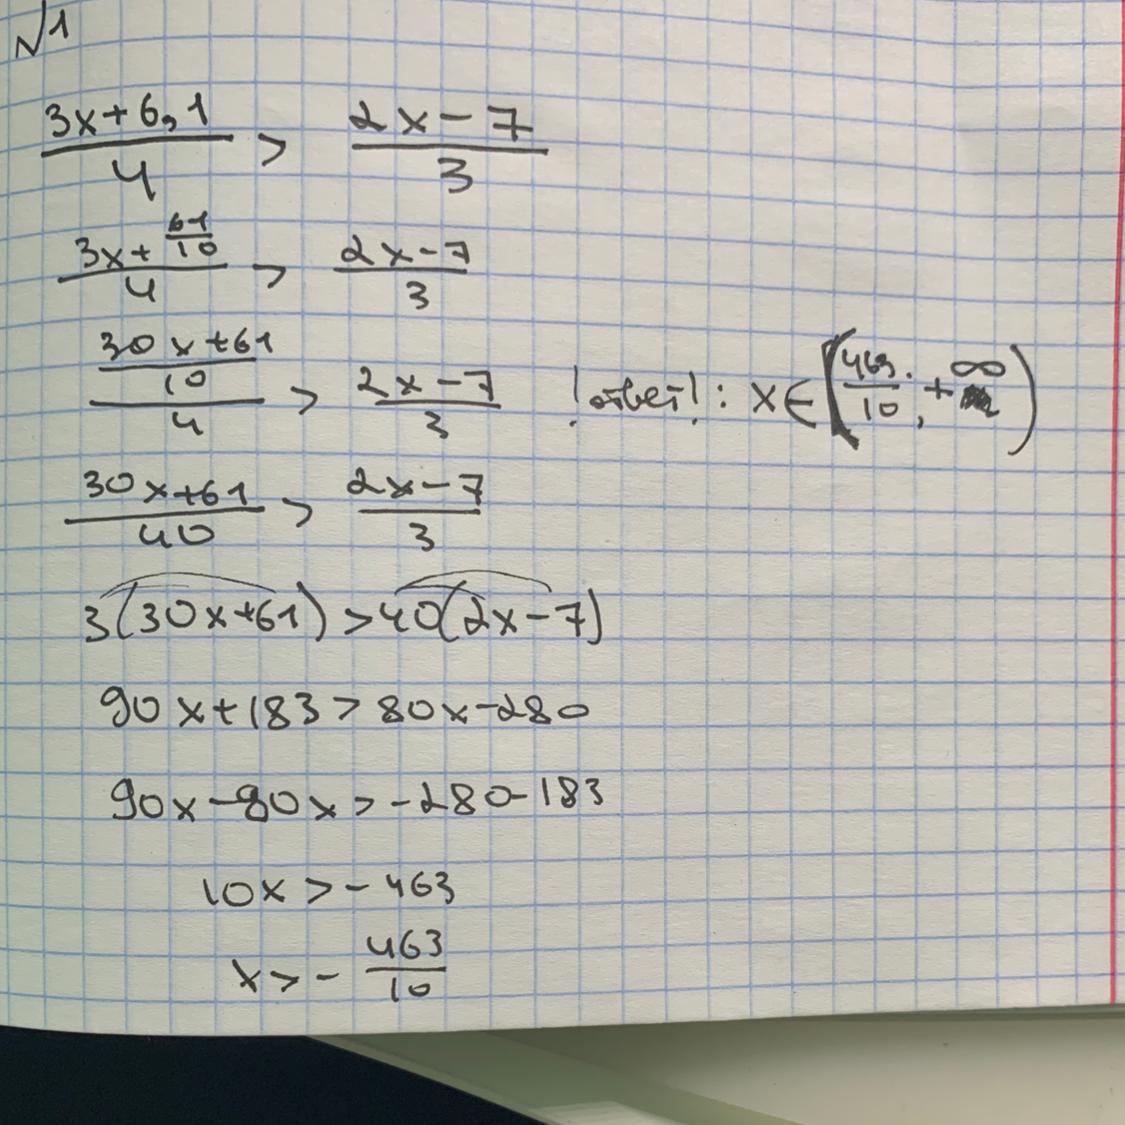 №1
(3x+6,1)/4 > (2x-7)/3
(3x+61/10)/4 > (2x-7)/3
((30x+61)/10)/4 > (2x-7)/3 !ответ!: x∈(463/10, +∞)
(30x+61)/40 > (2x-7)/3
3(30x+61)>40(2x-7)
90x+183>80x-280
90x-80x>-280-183
10x>-463
x>-463/10